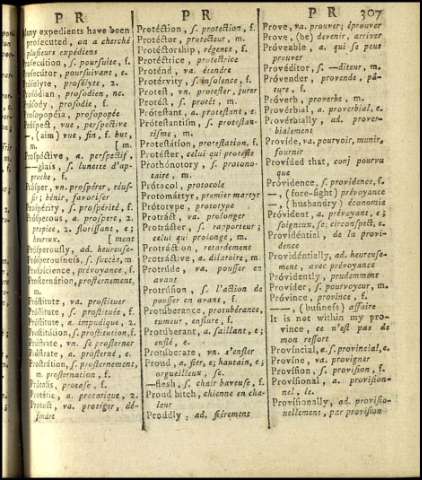 P R
P R
P R
307
many expedients have been
prosecuted, on a cherché
plusieurs expédiens
Prosecution, s. poursuite, f.
Prosecutor, poursuivant, e.
Prosélyte, prosélyte, 2.
Prosódian, prosodien, ne.
Prósody, prosodie, f.
Prosopopœia, prosopopée
Próspect, vue, perspective
—, (aim) vue, fin, f. but,
m. [m.
Prospéctive, a. perspectif,
—glass, s. lunette d'ap-
proche, f.
Prósper, vn. prospérer, réus-
sir; bénir, favoriser
Prospérity, s. prospérité, f.
Prósperous, a. prospère, 2.
propice, 2. florissant, e;
heureux,
Prósperously, ad. heureuse-
ment
Prósperousness, s. succès, m
Prospicience, prévoyance, f.
Prosternátion, prosternement,
m.
Próstitute, va. prostituer
Próstitute, s. prostituée, f.
Próstitute, a. impudique, 2.
Prostitútion, s. prostitution, f.
Próstrate, vn. se prosterner
Próstrate, a. prosterné, e.
Prostrátion, s. prosternement,
m. prosternation, f.
Prótasis, protase, f.
a. protatique, 2.
Protéct, va. protéger, dé-
fendre
Protéction, s. protection, f.
Protéctor, protecteur, m.
Protéctorship, régence, f.
Protéctrice, protectrice
Proténd, va. étendre
Protérvity, s. insolence, f.
Protest, vn. protester, jurer
Protést, s. protêt, m.
Prótestant, a. protestant, e.
Prótestantism, s. protestan-
tisme, m.
Protestátion, protestation, f.
Protéster, celui qui proteste
Prothónotory, s. protono-
taire, m.
Prótocol, protocole
Protomártyr, premier martyr
Prótotype, prototype
Protráct, va. prolonger
Protrácter, s. rapporteur;
celui qui prolonge, m.
Protráction, retardement
Protráctive, a. dilatoire, m.
Protrúde, va. pousser en
avant
Protrúsion, s. l'action de
pousser en avant, f.
Protúberance, protubérance,
tumeur, enflure, f.
Protúberant, a. saillant, e;
enflé, e.
Protúberate, vn. s'enfler
Proud, a. fier, e; hautain, e;
orgueilleux, se.
—flesh, s. chair baveuse, f.
Proud bitch, chienne en cha-
leur
Próudly, ad. fièrement
Prove, va. prouver; éprouver
Prove, (be) devenir, arriver
Próveable, a. qui se peut
prouver
Provéditor, s. —diteur, m.
Próvender, provende, pâ-
ture, f.
Próverb, proverbe, m.
Provérbial, a. proverbial, e.
Provérbially, ad. prover-
bialement
Províde, va. pourvoir, munir,
fournir
Provided that, conj pourvu
que
Próvidence, s. providence, f.
—, (fore-sight) prévoyance
—, (husbandry) économie
Próvident, a. prévoyant, e;
soigneux, se; circonspect, e.
Providéntial, de la provi-
dence
Providéntially, ad. heureuse-
ment, avec prévoyance
Próvidently, prudemment
Províder, s. pourvoyeur, m.
Próvince, province, f.
——, (business) affaire
It is not within my pro-
vince, ce n'est pas de
mon ressort
Províncial, a. s. provincial, e.
Províne, va. provigner
Provísion, s. provision, f.
Provísional, a. provision-
nel, le.
Provísionally, ad. provisio-
nellement, par provision